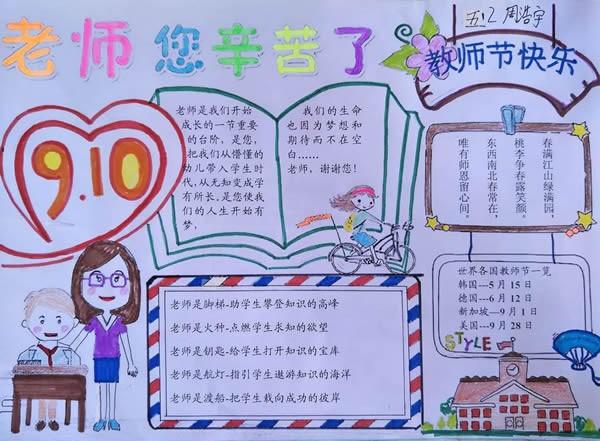 老师您辛苦了
五12 周浩宇
教师节快乐
9.10
老师是我们开始
成长的一节重要
的台阶，是您，
把我们从懵懂的
幼儿带入学生时
代，从无知变成学
有所长，是您使我
们的人生开始有
梦，
我们的生命
也因为梦想和
期待而不在空
白……
老师，谢谢您！
春满江山绿满园，
桃李争春露笑颜。
东西南北春常在，
唯有师恩留心间。
老师是脚梯-助学生攀登知识的高峰
老师是火种-点燃学生求知的欲望
老师是钥匙-给学生打开知识的宝库
老师是航灯-指引学生遨游知识的海洋
老师是渡船-把学生载向成功的彼岸
世界各国教师节一览
韩国---5 月 15 日
德国---6 月 12 日
新加坡---9 月 1 日
美国---9 月 28 日
STYLE